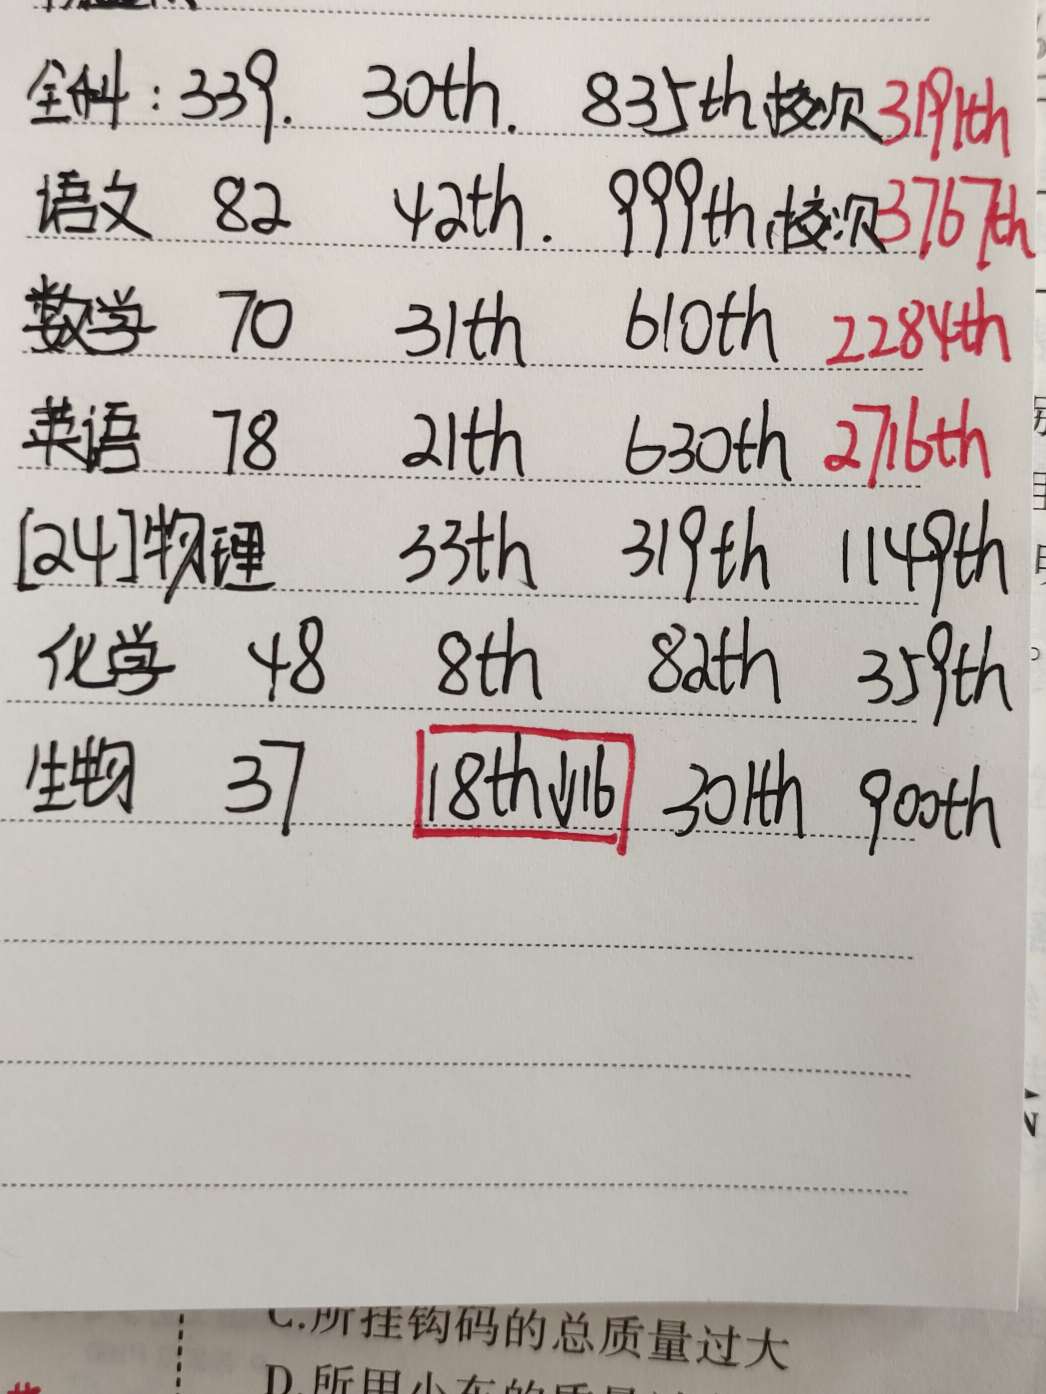 全科：339. 30th. 835th校次3191th
语文 82 42th. 999th校次3767th
数学 70 31th 610th 2284th
英语 78 21th 630th 2716th
[24]物理 33th 319th 1149th
化学 48 8th 82th 359th
生物 37 18th↓16 301th 900th
C.所挂钩码的总质量过大
D.所用小车的质量